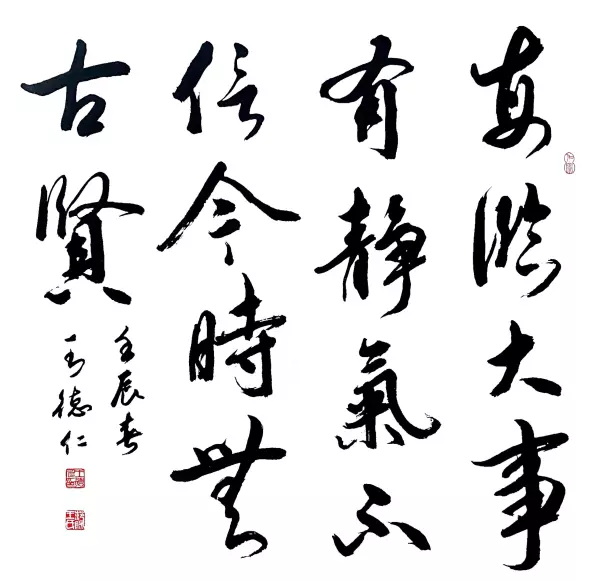 每臨大事
有靜氣不
信今時無
古賢
壬辰春
王德仁